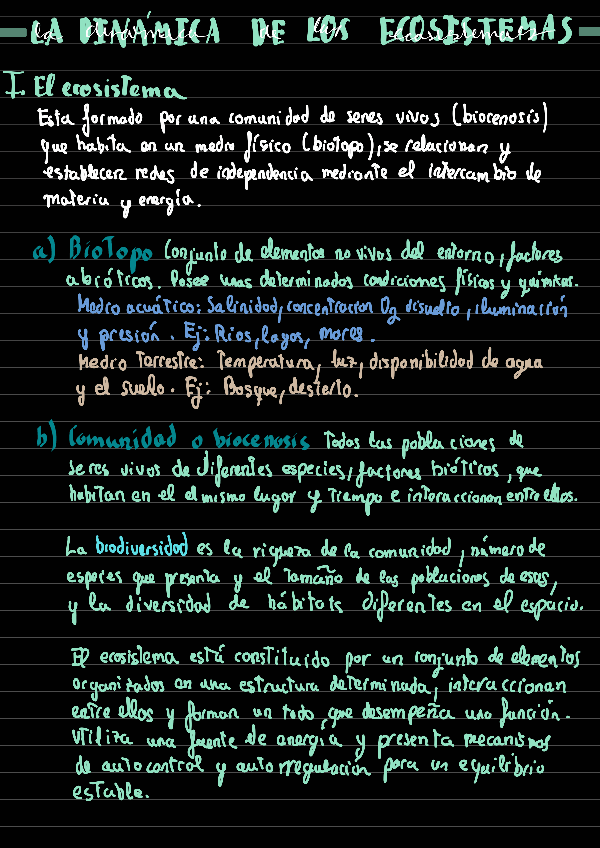 LA DINÁMICA DE LOS ECOSISTEMAS
I. El ecosistema
Esta formado por una comunidad de seres vivos (biocenosis)
que habita en un medio físico (biotopo), se relacionan y
establecen redes de independencia mediante el intercambio de
materia y energía.
a) Biotopo Conjunto de elementos no vivos del entorno, factores
abióticos. Posee unas determinados condiciones físicas y químicas.
Medio acuático: Salinidad, concentracion O2 disuelto, iluminación
y presión. Ej: Rios, lagos, mares.
Medio Terrestre: Temperatura, luz, disponibilidad de agua
y el suelo. Ej: Bosque, desierto.
b) Comunidad o biocenosis Todos las poblaciones de
seres vivos de diferentes especies, factores bióticos, que
habitan en el el mismo lugar y Tiempo e interaccionan entre ellos.
La biodiversidad es la riqueza de la comunidad, número de
especies que presenta y el Tamaño de las poblaciones de esas,
y la diversidad de hábitats diferentes en el espacio.
El ecosistema está constituido por un conjunto de elementos
organizados en una estructura determinada, interaccionan
entre ellos y forman un todo, que desempeña una función.
Utiliza una fuente de energía y presenta mecanismos
de autocontrol y autorregulación para un equilibrio
estable.